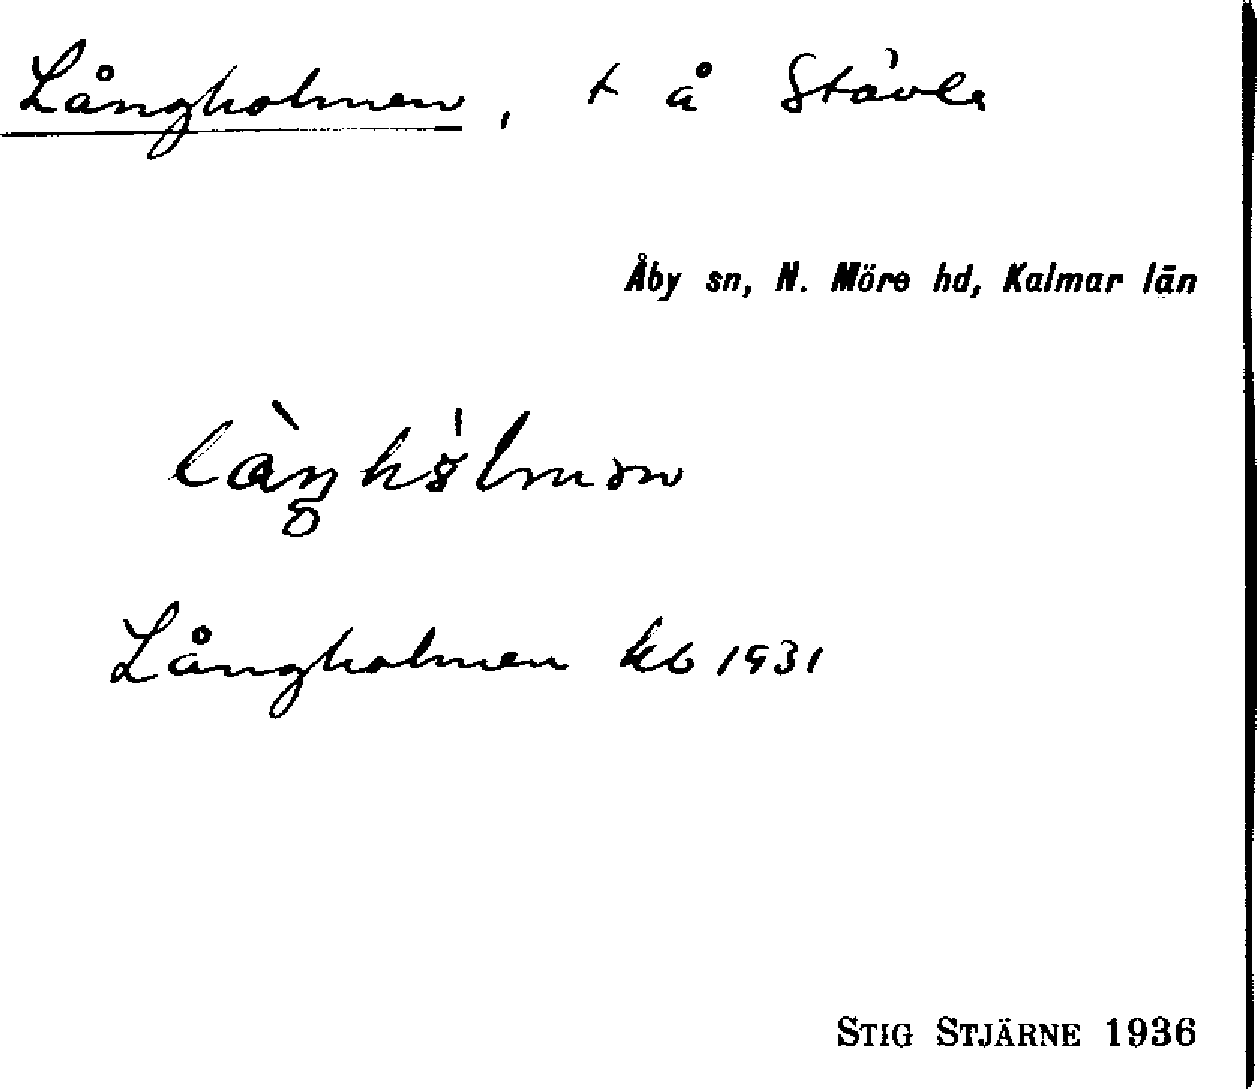 Långholmen, t å Stävla
Åby sn, N. Möre hd, Kalmar län
Långholmen kb 1931
STIG STJÄRNE 1936